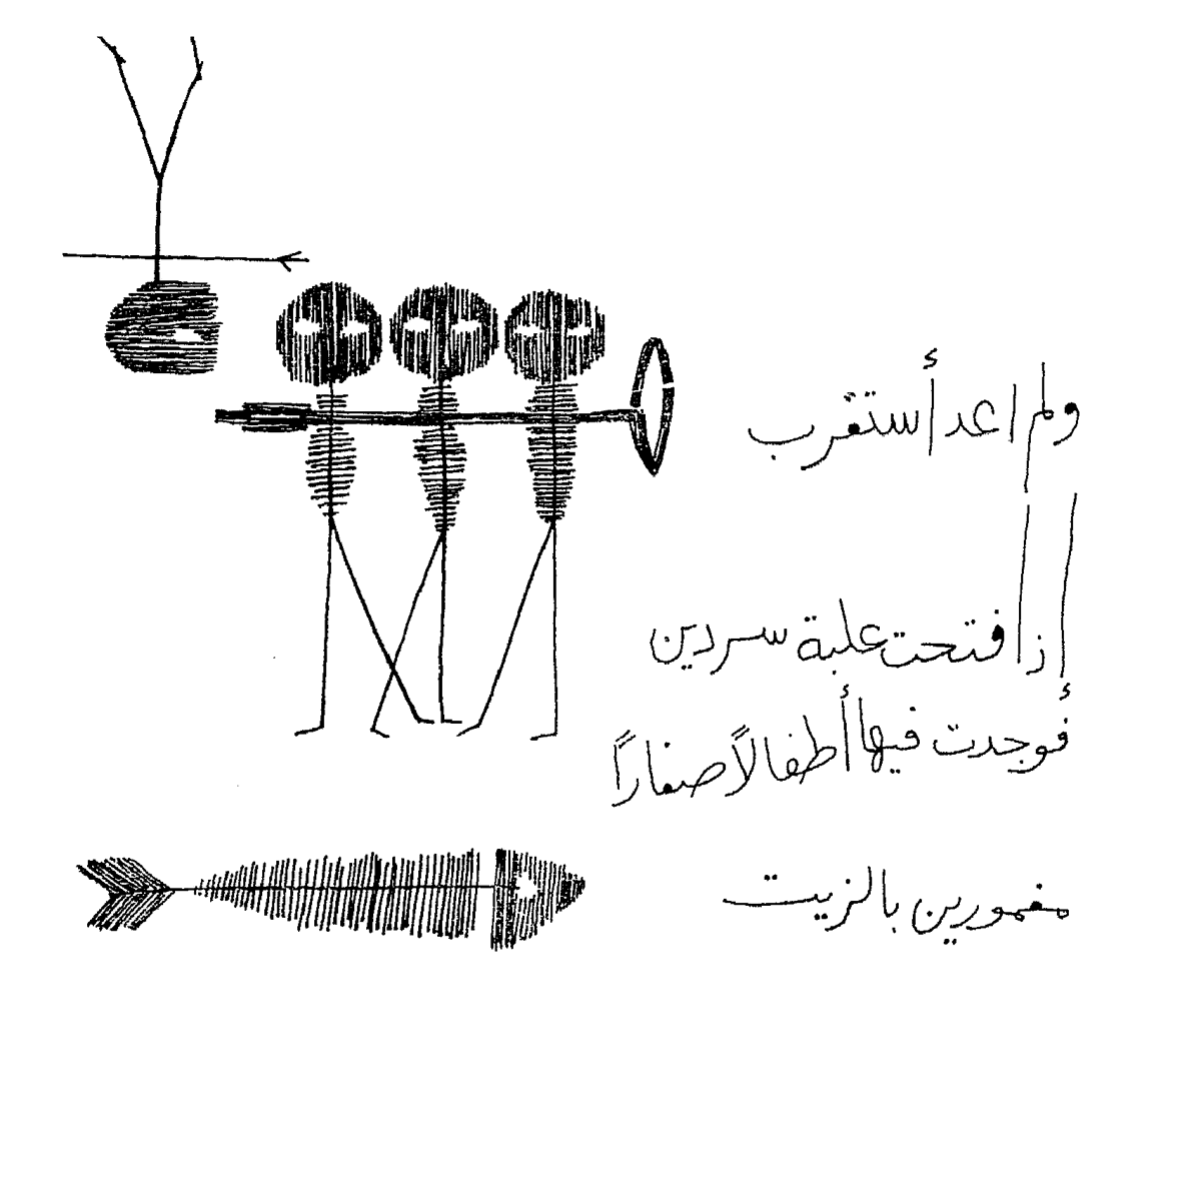 ولم اعد أستغرب
إذا فتحت علبة سردين
فوجدت فيها أطفالاً صغاراً
مغمورين بالزيت